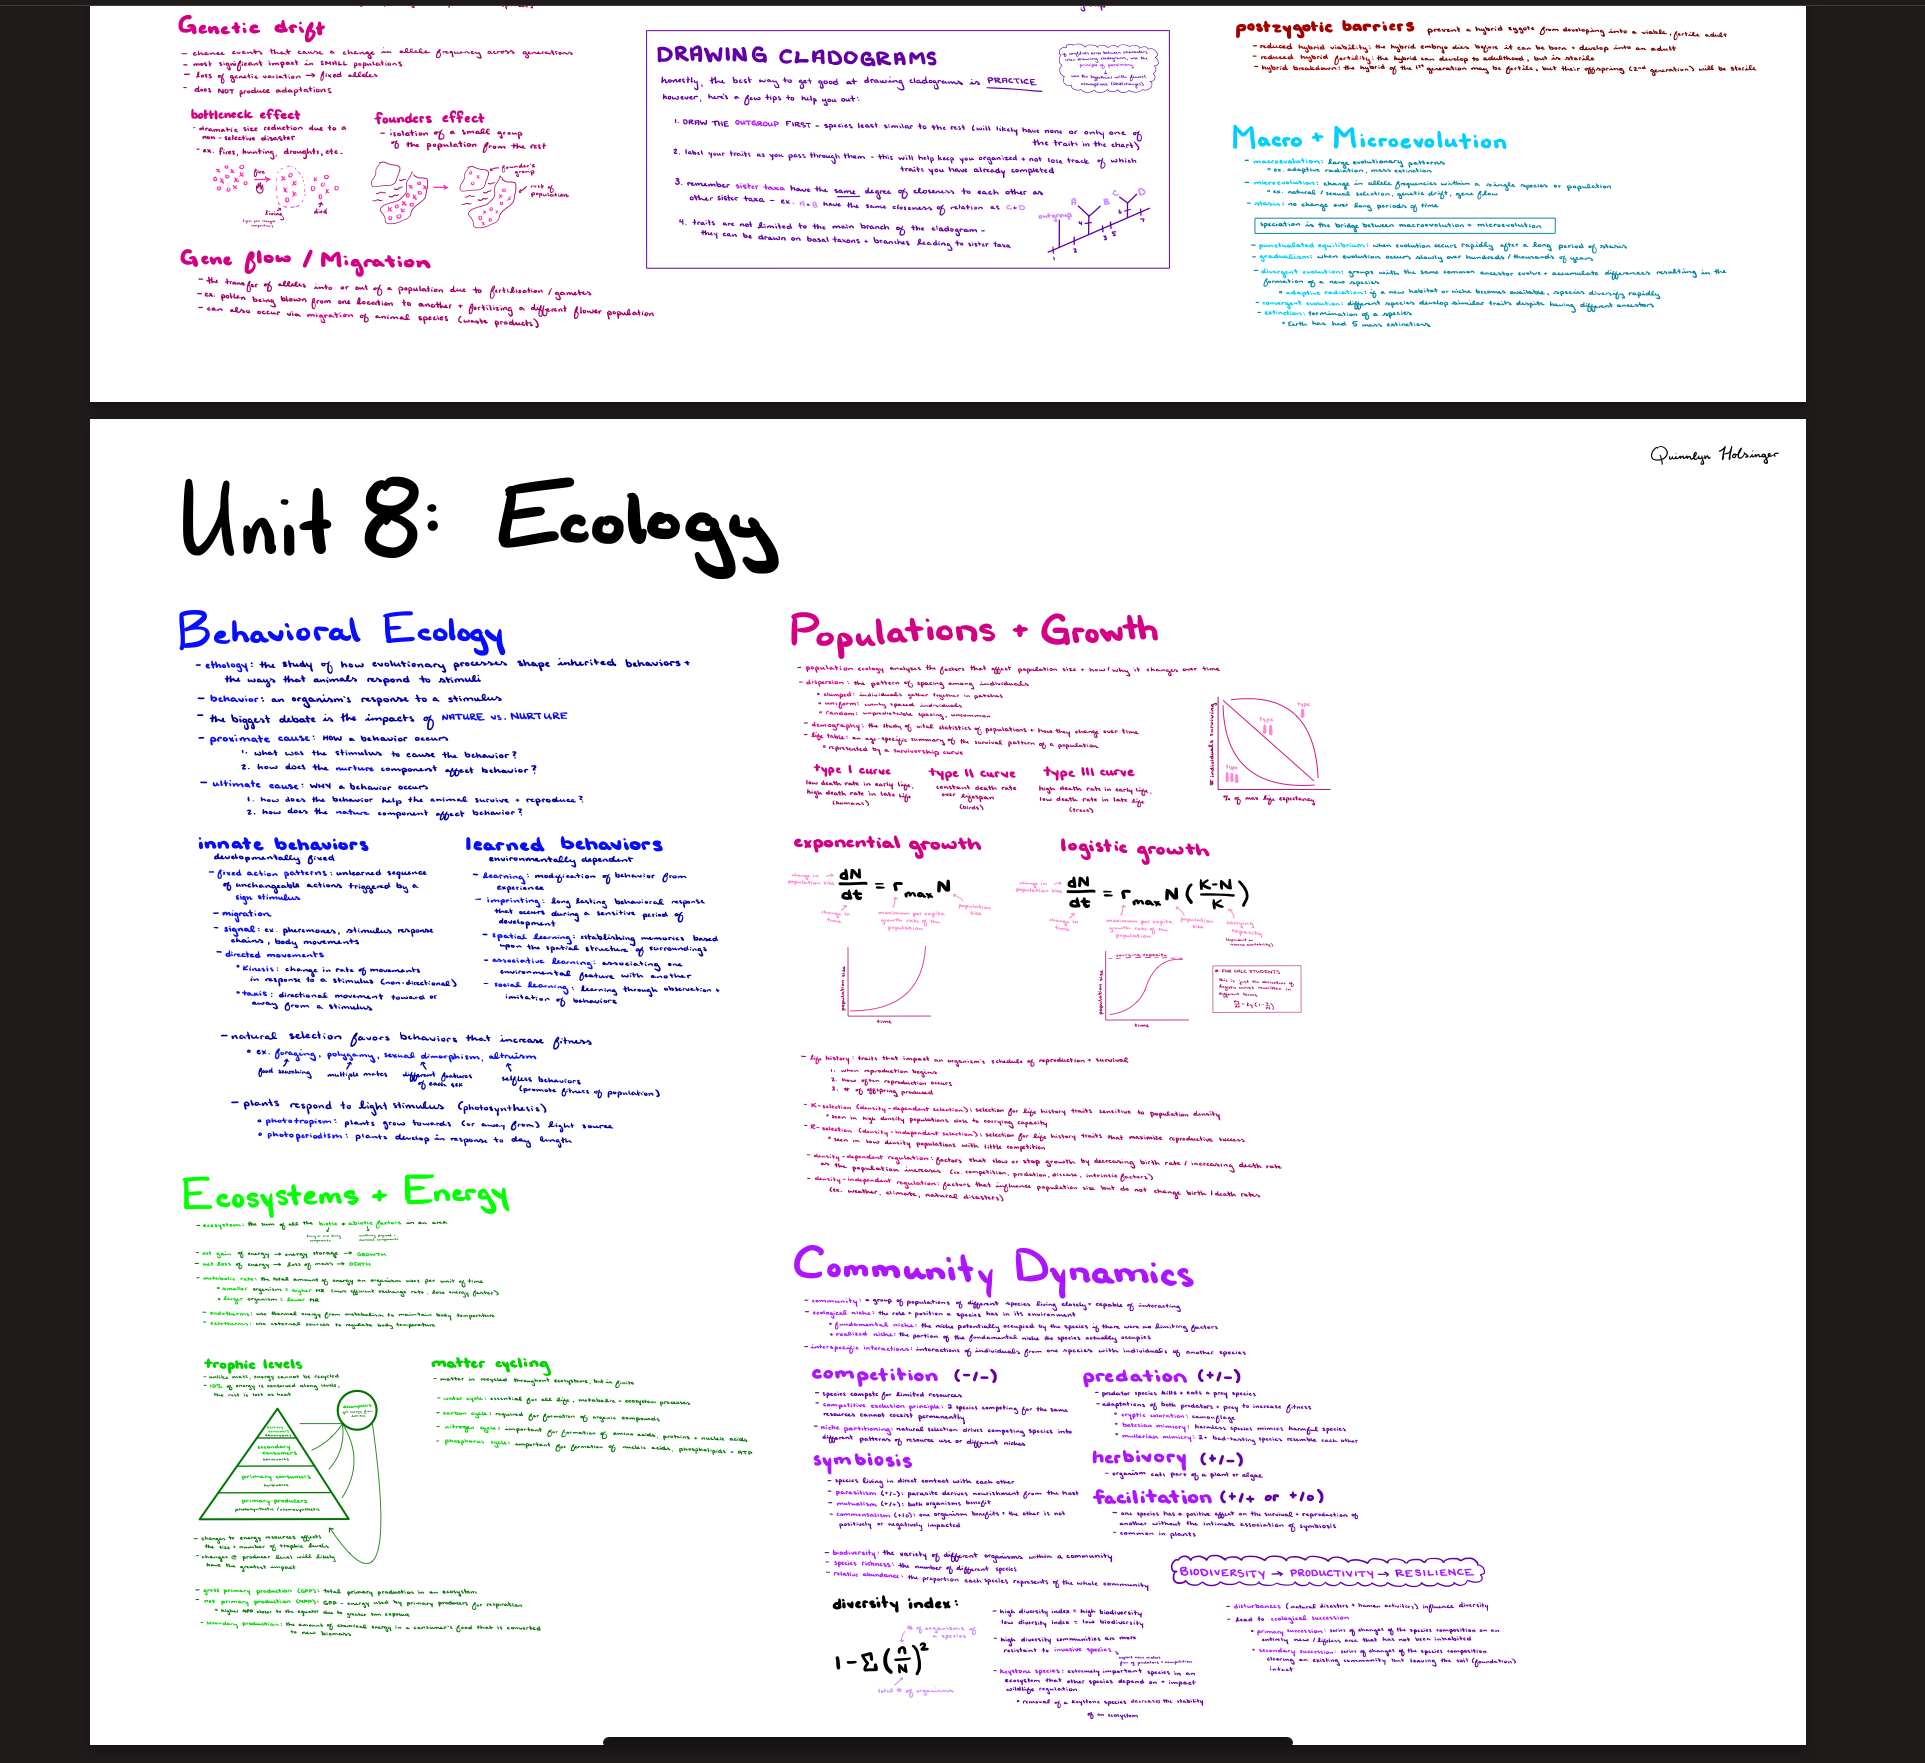 Genetic drift
- chance events that cause a change in allele frequency across generations
- most significant impact in SMALL populations
- loss of genetic variation → fixed alleles
- does NOT produce adaptations
bottleneck effect
- dramatic size reduction due to a
non-selective disaster
- ex. fires, hunting, droughts, etc.
fire
living
died
founders effect
- isolation of a small group
of the population from the rest
founder's
group
rest of
population
Gene flow / Migration
- the transfer of alleles into or out of a population due to fertilization / gametes
- ex. pollen being blown from one location to another + fertilizing a different flower population
- can also occur via migration of animal species (waste products)
DRAWING CLADOGRAMS
honestly, the best way to get good at drawing cladograms is PRACTICE
however, here's a few tips to help you out:
1. DRAW THE OUTGROUP FIRST - species least similar to the rest (will likely have none or only one of
the traits in the chart)
2. label your traits as you pass through them - this will help keep you organized + not lose track of which
traits you have already completed
3. remember sister taxa have the same degree of closeness to each other as
other sister taxa - ex. A+B have the same closeness of relation as C+D
4. traits are not limited to the main branch of the cladogram -
they can be drawn on basal taxons + branches leading to sister taxa
outgroup
A
B
C
D
1
2
3
4
5
6
7
postzygotic barriers prevent a hybrid zygote from developing into a viable, fertile adult
- reduced hybrid viability: the hybrid embryo dies before it can be born + develop into an adult
- reduced hybrid fertility: the hybrid can develop to adulthood, but is sterile
- hybrid breakdown: the hybrid of the 1st generation may be fertile, but their offspring (2nd generation) will be sterile
Macro + Microevolution
- macroevolution: large evolutionary patterns
• ex. adaptive radiation, mass extinction
- microevolution: change in allele frequencies within a single species or population
• ex. natural / sexual selection, genetic drift, gene flow
- stasis: no change over long periods of time
speciation is the bridge between macroevolution + microevolution
- punctualated equilibrium: when evolution occurs rapidly after a long period of stasis
- gradualism: when evolution occurs slowly over hundreds / thousands of years
- divergent evolution: groups with the same common ancestor evolve + accumulate differences resulting in the
formation of a new species
• adaptive radiation: if a new habitat or niche becomes available, species diversify rapidly
- convergent evolution: different species develop similar traits despite having different ancestors
- extinction: termination of a species
• Earth has had 5 mass extinctions
Quinnlyn Holsinger
Unit 8: Ecology
Behavioral Ecology
- ethology: the study of how evolutionary processes shape inherited behaviors +
the ways that animals respond to stimuli
- behavior: an organism's response to a stimulus
- the biggest debate is the impacts of NATURE vs. NURTURE
- proximate cause: HOW a behavior occurs
1. what was the stimulus to cause the behavior?
2. how does the nurture component affect behavior?
- ultimate cause: WHY a behavior occurs
1. how does the behavior help the animal survive + reproduce?
2. how does the nature component affect behavior?
innate behaviors
developmentally fixed
- fixed action patterns: unlearned sequence
of unchangeable actions triggered by a
sign stimulus
- migration
- signal: ex. pheromones, stimulus response
chains, body movements
- directed movements
• kinesis: change in rate of movements
in response to a stimulus (non-directional)
• taxis: directional movement toward or
away from a stimulus
learned behaviors
environmentally dependent
- learning: modification of behavior from
experience
- imprinting: long lasting behavioral response
that occurs during a sensitive period of
development
- spatial learning: establishing memories based
upon the spatial structure of surroundings
- associative learning: associating one
environmental feature with another
- social learning: learning through observation +
imitation of behaviors
- natural selection favors behaviors that increase fitness
• ex. foraging, polygamy, sexual dimorphism, altruism
food searching
multiple mates
different features
of each sex
selfless behaviors
(promote fitness of population)
- plants respond to light stimulus (photosynthesis)
• phototropism: plants grow towards (or away from) light source
• photoperiodism: plants develop in response to day length
Populations + Growth
- population ecology analyzes the factors that affect population size + how/why it changes over time
- dispersion: the pattern of spacing among individuals
• clumped: individuals gather together in patches
• uniform: evenly spaced individuals
• random: unpredictable spacing, uncommon
- demography: the study of vital statistics of populations + how they change over time
- life table: an age-specific summary of the survival pattern of a population
• represented by a survivorship curve
type I curve
low death rate in early life,
high death rate in late life
(humans)
type II curve
constant death rate
over lifespan
(birds)
type III curve
high death rate in early life,
low death rate in late life
(trees)
# individuals surviving
type
I
type
II
type
III
% of max life expectancy
exponential growth
change in →
population size
dN/dt = rmax N
change in
time
maximum per capita
growth rate of the
population
population
size
population size
time
logistic growth
change in →
population size
dN/dt = rmax N (K-N/K)
change in
time
maximum per capita
growth rate of the
population
population
size
carrying
capacity
carrying capacity
population size
time
* FOR CALC STUDENTS
this is just the derivative of
logistic curves rewritten in
different terms
- life history: traits that impact an organism's schedule of reproduction + survival
1. when reproduction begins
2. how often reproduction occurs
3. # of offspring produced
- K-selection (density-dependent selection): selection for life history traits sensitive to population density
• seen in high density populations close to carrying capacity
- R-selection (density-independent selection): selection for life history traits that maximize reproductive success
• seen in low density populations with little competition
- density-dependent regulation: factors that slow or stop growth by decreasing birth rate / increasing death rate
as the population increases (ix. competition, predation, disease, intrinsic factors)
- density-independent regulation: factors that influence population size but do not change birth / death rates
(ex. weather, climate, natural disasters)
Ecosystems + Energy
- ecosystem: the sum of all the biotic + abiotic factors in an area
- net gain of energy → energy storage → GROWTH
- net loss of energy → loss of mass → DEATH
- metabolic rate: the total amount of energy an organism uses per unit of time
• smaller organism = higher MR (more efficient exchange rate, lose energy faster)
• larger organism = lower MR
- endotherms: use thermal energy from metabolism to maintain body temperature
- ectotherms: use external sources to regulate body temperature
trophic levels
- unlike mass, energy cannot be recycled
- 10% of energy is conserved along levels,
the rest is lost as heat
decomposers
secondary
consumers
primary consumers
herbivores
primary producers
photosynthetic / chemosynthetic
- changes to energy resources affects
the size + number of trophic levels
- changes @ producer level will likely
have the greatest impact
matter cycling
- matter is recycled throughout ecosystems, but is finite
- water cycle: essential for all life, metabolic + ecosystem processes
- carbon cycle: required for formation of organic compounds
- nitrogen cycle: important for formation of amino acids, proteins + nucleic acids
- phosphorus cycle: important for formation of nucleic acids, phospholipids + ATP
- gross primary production (GPP): total primary production in an ecosystem
- net primary production (NPP): GPP - energy used by primary producers for respiration
• higher NPP closer to the equator due to greater sun exposure
- secondary production: the amount of chemical energy in a consumer's food that is converted
to new biomass
Community Dynamics
- community: a group of populations of different species living closely + capable of interacting
- ecological niche: the role + position a species has in its environment
• fundamental niche: the niche potentially occupied by the species if there were no limiting factors
• realized niche: the portion of the fundamental niche the species actually occupies
- interspecific interactions: interactions of individuals from one species with individuals of another species
competition (-/-)
- species compete for limited resources
- competitive exclusion principle: 2 species competing for the same
resources cannot coexist permanently
- niche partitioning: natural selection drives competing species into
different patterns of resource use or different niches
symbiosis
- species living in direct contact with each other
- parasitism (+/-): parasite derives nourishment from the host
- mutualism (+/+): both organisms benefit
- commensalism (+/0): one organism benefits + the other is not
positively or negatively impacted
predation (+/-)
- predator species kills + eats a prey species
- adaptations of both predators + prey to increase fitness
• cryptic coloration: camouflage
• batesian mimicry: harmless species mimics harmful species
• mullerian mimicry: 2+ bad-tasting species resemble each other
herbivory (+/-)
- organism eats part of a plant or algae
facilitation (+/+ or +/0)
- one species has a positive effect on the survival + reproduction of
another without the intimate association of symbiosis
- common in plants
- biodiversity: the variety of different organisms within a community
- species richness: the number of different species
- relative abundance: the proportion each species represents of the whole community
BIODIVERSITY → PRODUCTIVITY → RESILIENCE
diversity index:
# of organisms of
a species
1 - Σ (n/N)²
total # of organisms
- high diversity index = high biodiversity
low diversity index = low biodiversity
- high diversity communities are more
resistant to invasive species
- keystone species: extremely important species in an
ecosystem that other species depend on + impact
wildlife regulation
• removal of a keystone species decreases the stability
of an ecosystem
- disturbances (natural disasters + human activities) influence diversity
- lead to ecological succession
• primary succession: series of changes of the species composition on an
entirely new / lifeless area that has not been inhabited
• secondary succession: series of changes of the species composition
clearing an existing community but leaving the soil (foundation)
intact